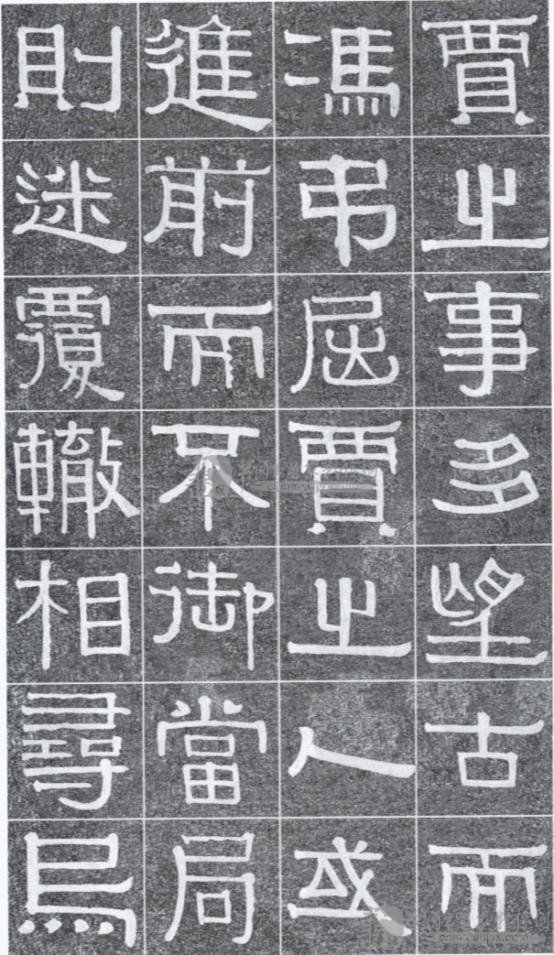 賈之事多望古而
馮弔屈賈之人或
進前而不御當局
則迷覆轍相尋烏